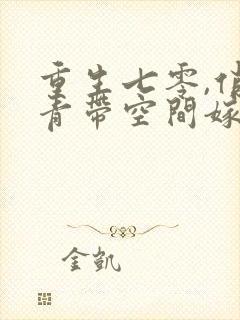 重生七零,俏
青带空间嫁
金凯